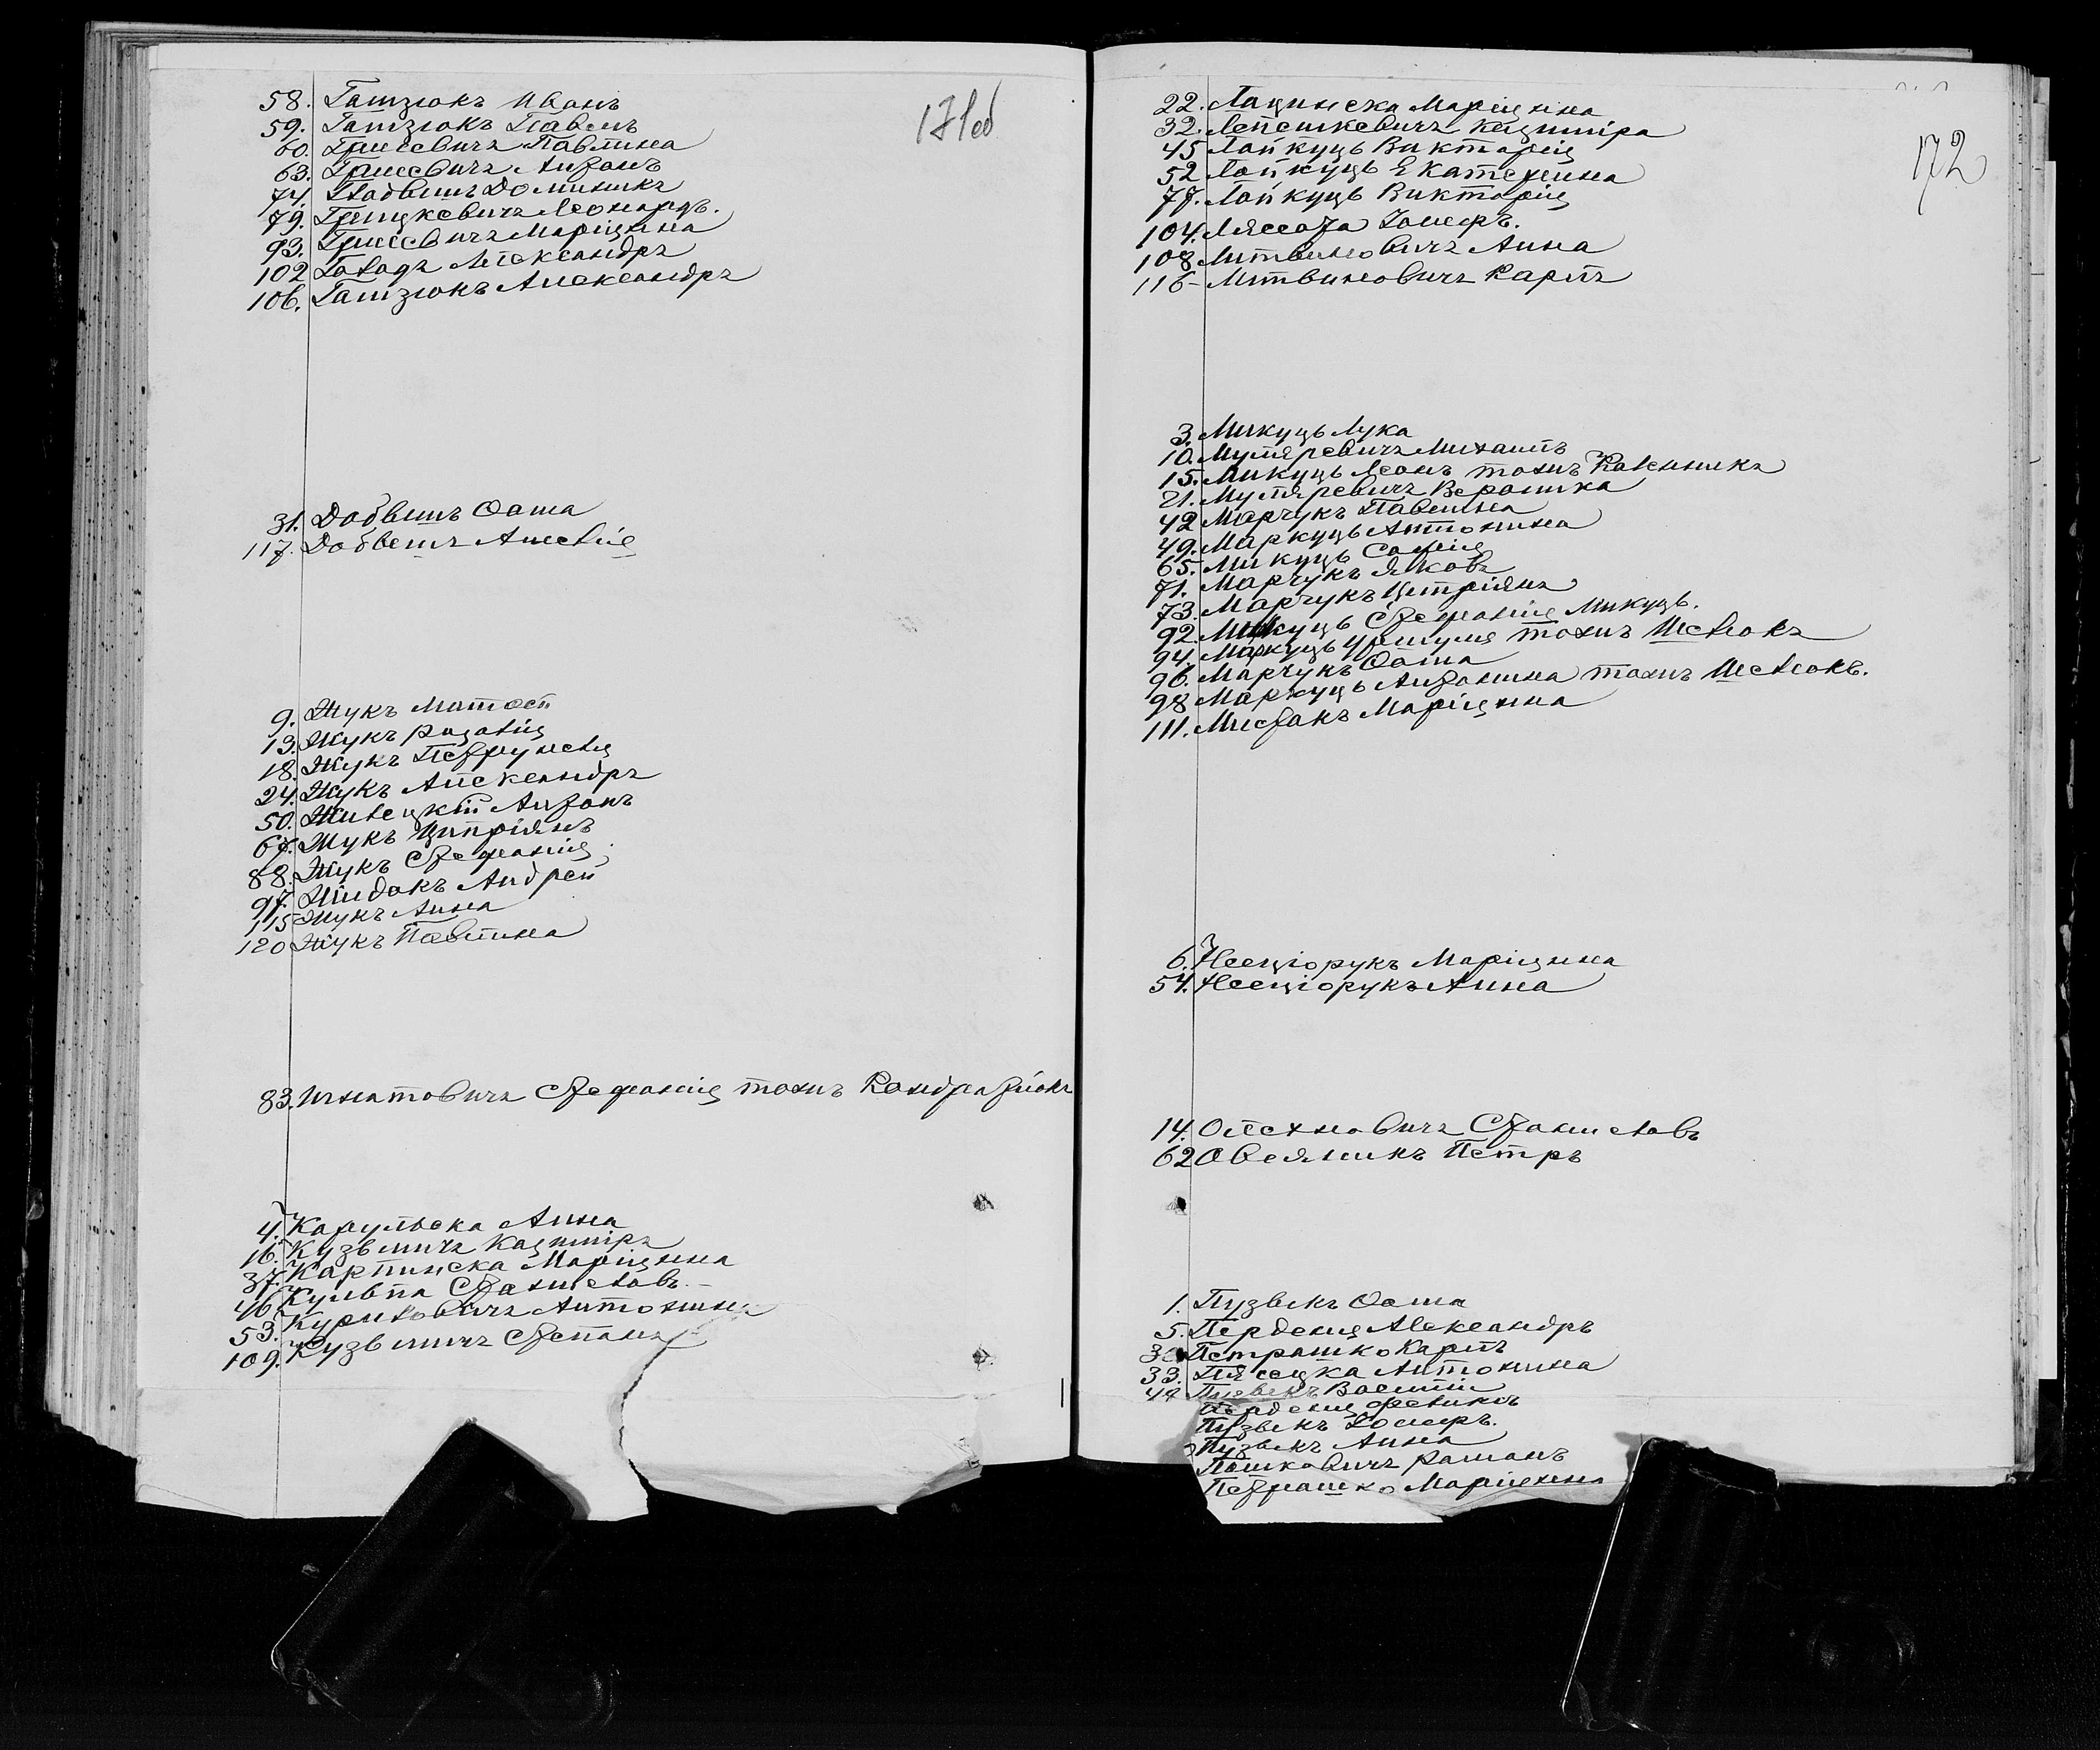 171об
58. Гатзюкъ Иванъ
59. Гатзюкъ Павелъ
60. Гриневичъ Павлина
63. Гриневичъ Антонъ
74. Гладышъ Доминикъ
79. Грицкевичъ Леонардъ.
93. Гриневичъ Марцеянна
102 Александръ
106. Гатзюкъ Александръ
31. Добвешъ Фома
117. Добвешъ
9. Жукъ Матвей
13. Жукъ Розалія
18. Жукъ Петрунеля
24. Жукъ Александръ
50. Живецкій Антонъ
67. Жукъ Ципріянъ
88. Жукъ Стефанія
97. Андрей
115 Жукъ Анна
120 Жукъ Павлина
83. Игнатовичъ Стефанія тожъ Кондратюкъ
4. Карульска Анна
16. Кузьмичъ Казимиръ
37. Карпинска Маріянна
46. Кульпа Станиславъ
53. Антонина
109. Кузьмичъ Степанъ
172
22. Лацинска Маріянна
32. Лепешкевичъ Казимира
45 Лойкуць Викторія
52 Лойкуць Екатерина
77. Лойкуць Викторія
104. Лясота Іосифъ.
108 Литвиновичъ Анна
116- Литвиновичъ Карлъ
3. Микуць Лука
10. Муляревичъ Михаилъ
15. Микуць Леонъ тожъ
21. Муляревичъ Вероника
42 Марчукъ Павлина
49. Маркуць Антонина
65. Микуць Софія
71. Марчукъ Яковъ
73. Марчукъ Ципріянъ
92. Стефанія Микуць.
94. Маркуць Уршуля тожъ
96. Марчукъ Фома
98 Маркуць Антонина тожъ
111. Мисюкъ Маріянна
6. Несцiорукъ Маріянна
54. Несцiорукъ Анна
14. Олехновичъ Станиславъ
62 Овсяникъ Петръ
1. Пузвекъ Фома
5. Перденя Александръ
Петрашко Карлъ
33. Пясецка Антонина
Пузвекъ Василій
Перденя Феликсъ
Пузвекъ Іосифъ.
Пузвекъ Анна
Пашкевичъ Романъ
Петрашко Маріянна